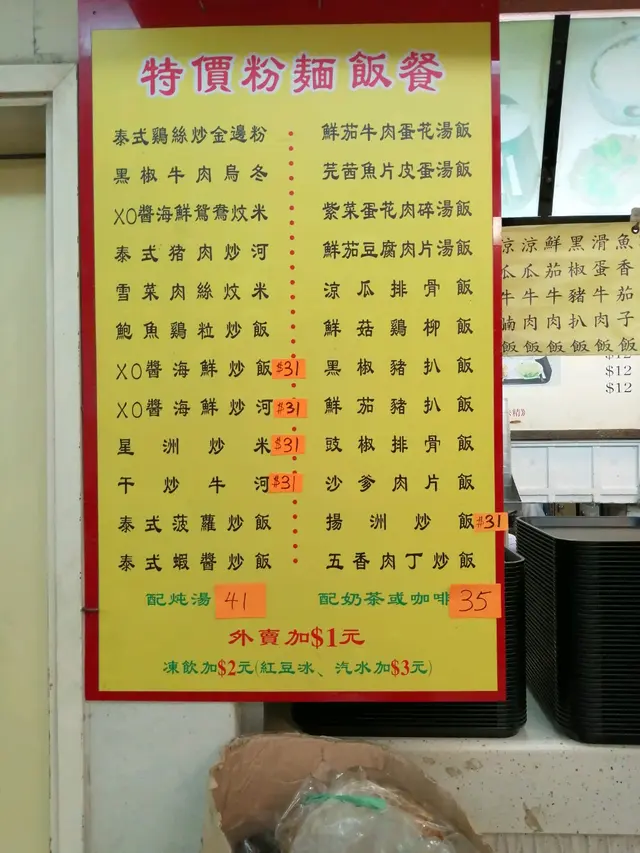 特價粉麵飯餐
泰式鷄絲炒金邊粉
黑椒牛肉烏冬
XO醬海鮮鴛鴦炆米
泰式猪肉炒河
雪菜肉絲炆米
鮑魚鷄粒炒飯
XO醬海鮮炒飯 $31
XO醬海鮮炒河 $31
星洲炒米 $31
干炒牛河 $31
泰式菠蘿炒飯
泰式蝦醬炒飯
配炖湯 41
鮮茄牛肉蛋花湯飯
芫茜魚片皮蛋湯飯
紫菜蛋花肉碎湯飯
鮮茄豆腐肉片湯飯
涼瓜排骨飯
鮮菇鷄柳飯
黑椒豬扒飯
鮮茄豬扒飯
豉椒排骨飯
沙爹肉片飯
揚洲炒飯 $31
五香肉丁炒飯
配奶茶或咖啡 35
外賣加$1元
凍飲加$2元(紅豆冰、汽水加$3元)
涼涼鮮黑滑魚
瓜瓜茄椒蛋香
牛牛牛豬牛茄
肉肉扒肉子
飯飯飯飯飯飯
$12
$12